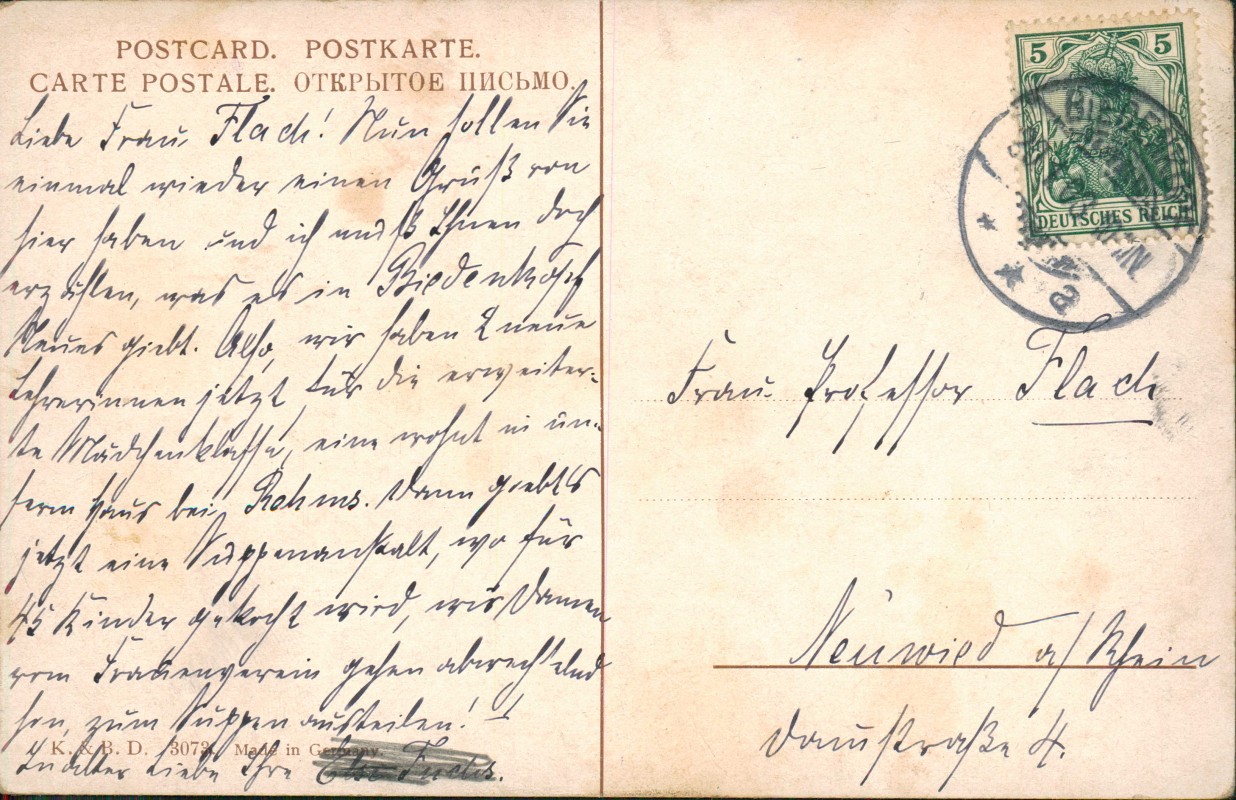 POSTCARD. POSTKARTE.
CARTE POSTALE. ОТКРЫТОЕ ПИСЬМО.
Liebe Frau Flach! Nun sollen Sie
einmal wieder einen Gruß von
hier haben und ich muß Ihnen doch
erzählen, was es in Biedenkopf
Neues giebt. Also, wir haben 2 neue
Lehrerinnen jetzt für die erweiter-
te Mädchenklasse, eine wohnt in un-
serm Haus bei Rehms. Dann giebt's
jetzt eine Suppenanstalt, wo für
45 Kinder gekocht wird, wir Damen
vom Frauenverein gehen abwechselnd
hin, zum Suppen austeilen!
K. & B. D. 3073. Made in Germany.
In alter Liebe Ihre Else Fuchs.
5 5
DEUTSCHES REICH
Frau Professor Flach
Neuwied a/Rhein
Daustraße 4.